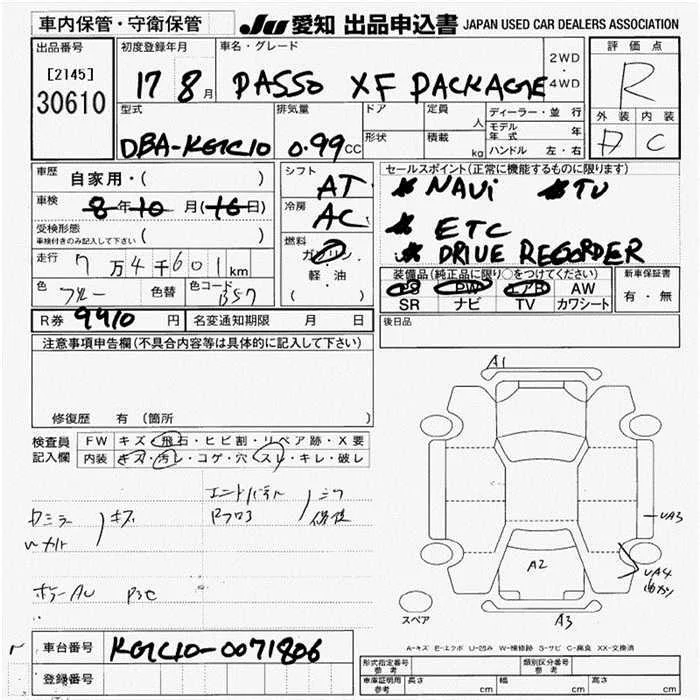 車内保管・守衛保管
JU 愛知 出品申込書 JAPAN USED CAR DEALERS ASSOCIATION
出品番号
[2145]
30610
初度登録年月
17 8月
車名・グレード
PASSO XF PACKAGE
2WD
・
4WD
評価点
R
外装 内装
D C
型式
DBA-KGC10
排気量
0.99CC
ドア
形状
定員
人
積載
kg
ディーラー・並行
モデル年式 年
ハンドル 左・右
車歴
自家用・( )
車検
8年10月(16日)
受検形態
車検付きのみ記入して下さい ( )
走行 7万4千601km
色 ブルー 色替 色コード B57
シフト
AT
冷房
AC
燃料
ガソリン
軽・油
( )
セールスポイント(正常に機能するものに限ります)
NAVi TV
ETC
DRIVE RECORDER
装備品(純正品に限り○をつけてください)
PS PW エアB AW
SR ナビ TV カワシート
新車保証書
有・無
R券 9910円 名変通知期限 月 日
後日品
注意事項申告欄(不具合内容等は具体的に記入して下さい)
修復歴 有(箇所
検査員
記入欄
FW キズ・飛石・ヒビ割・リペア跡・X要
内装 キズ・汚レ・コゲ・穴・スレ・キレ・破レ
キズ
A1
A2
A3
UA3
UA4
スペア
A-キズ E-エクボ U-凹み W-補修跡 S-サビ C-腐食 XX-交換済
車台番号 KGC10-0071806
登録番号
形式指定番号
参考
類別区分番号
参考
車庫証明用
参考
長さ cm 幅 cm 高さ cm